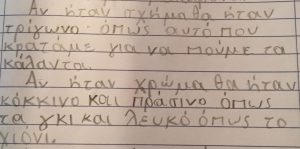 Αν ήταν σχήμα θα ήταν
τρίγωνο όπως αυτό που
κρατάμε για να πούμε τα
κάλαντα.
Αν ήταν χρώμα θα ήταν
κόκκινο και πράσινο όπως
τα γκι και λευκό όπως το
χιόνι.